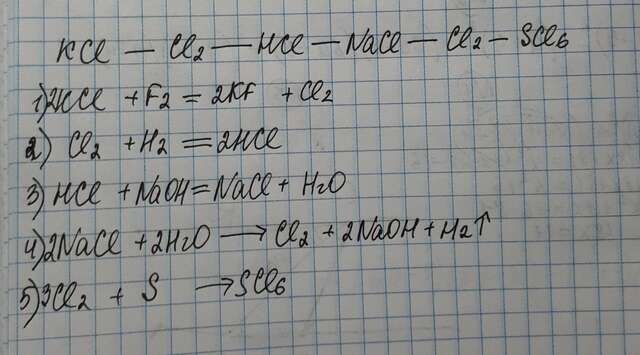 KCl — Cl2 — HCl — NaCl — Cl2 — SCl6
1) 2KCl + F2 = 2KF + Cl2
2) Cl2 + H2 = 2HCl
3) HCl + NaOH = NaCl + H2O
4) 2NaCl + 2H2O → Cl2 + 2NaOH + H2↑
5) 3Cl2 + S → SCl6